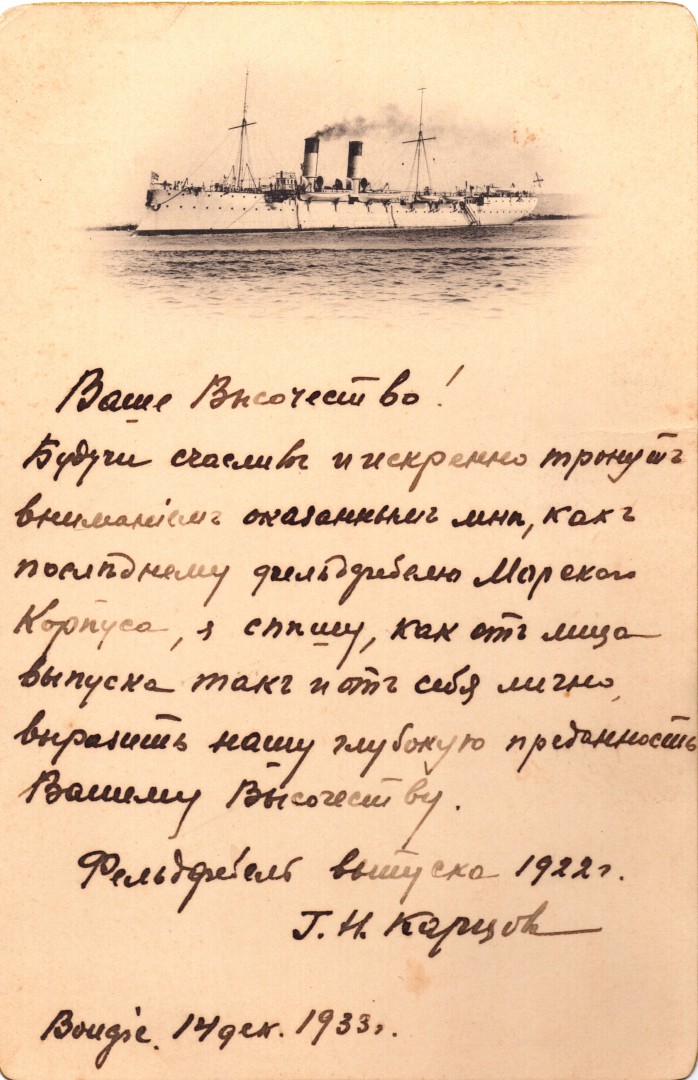 Ваше Высочество!
Будучи счасливъ и искренно тронутъ
вниманіемъ оказаннымъ мнѣ, какъ
послѣднему фельдфебелю Морского
Корпуса, я спѣшу, какъ отъ лица
выпуска такъ и отъ себя лично,
выразить нашу глубокую преданность
Вашему Высочеству.
Фельдфебель выпуска 1922 г.
Г. Н. Карцовъ
Bougie. 14 дек. 1933 г.